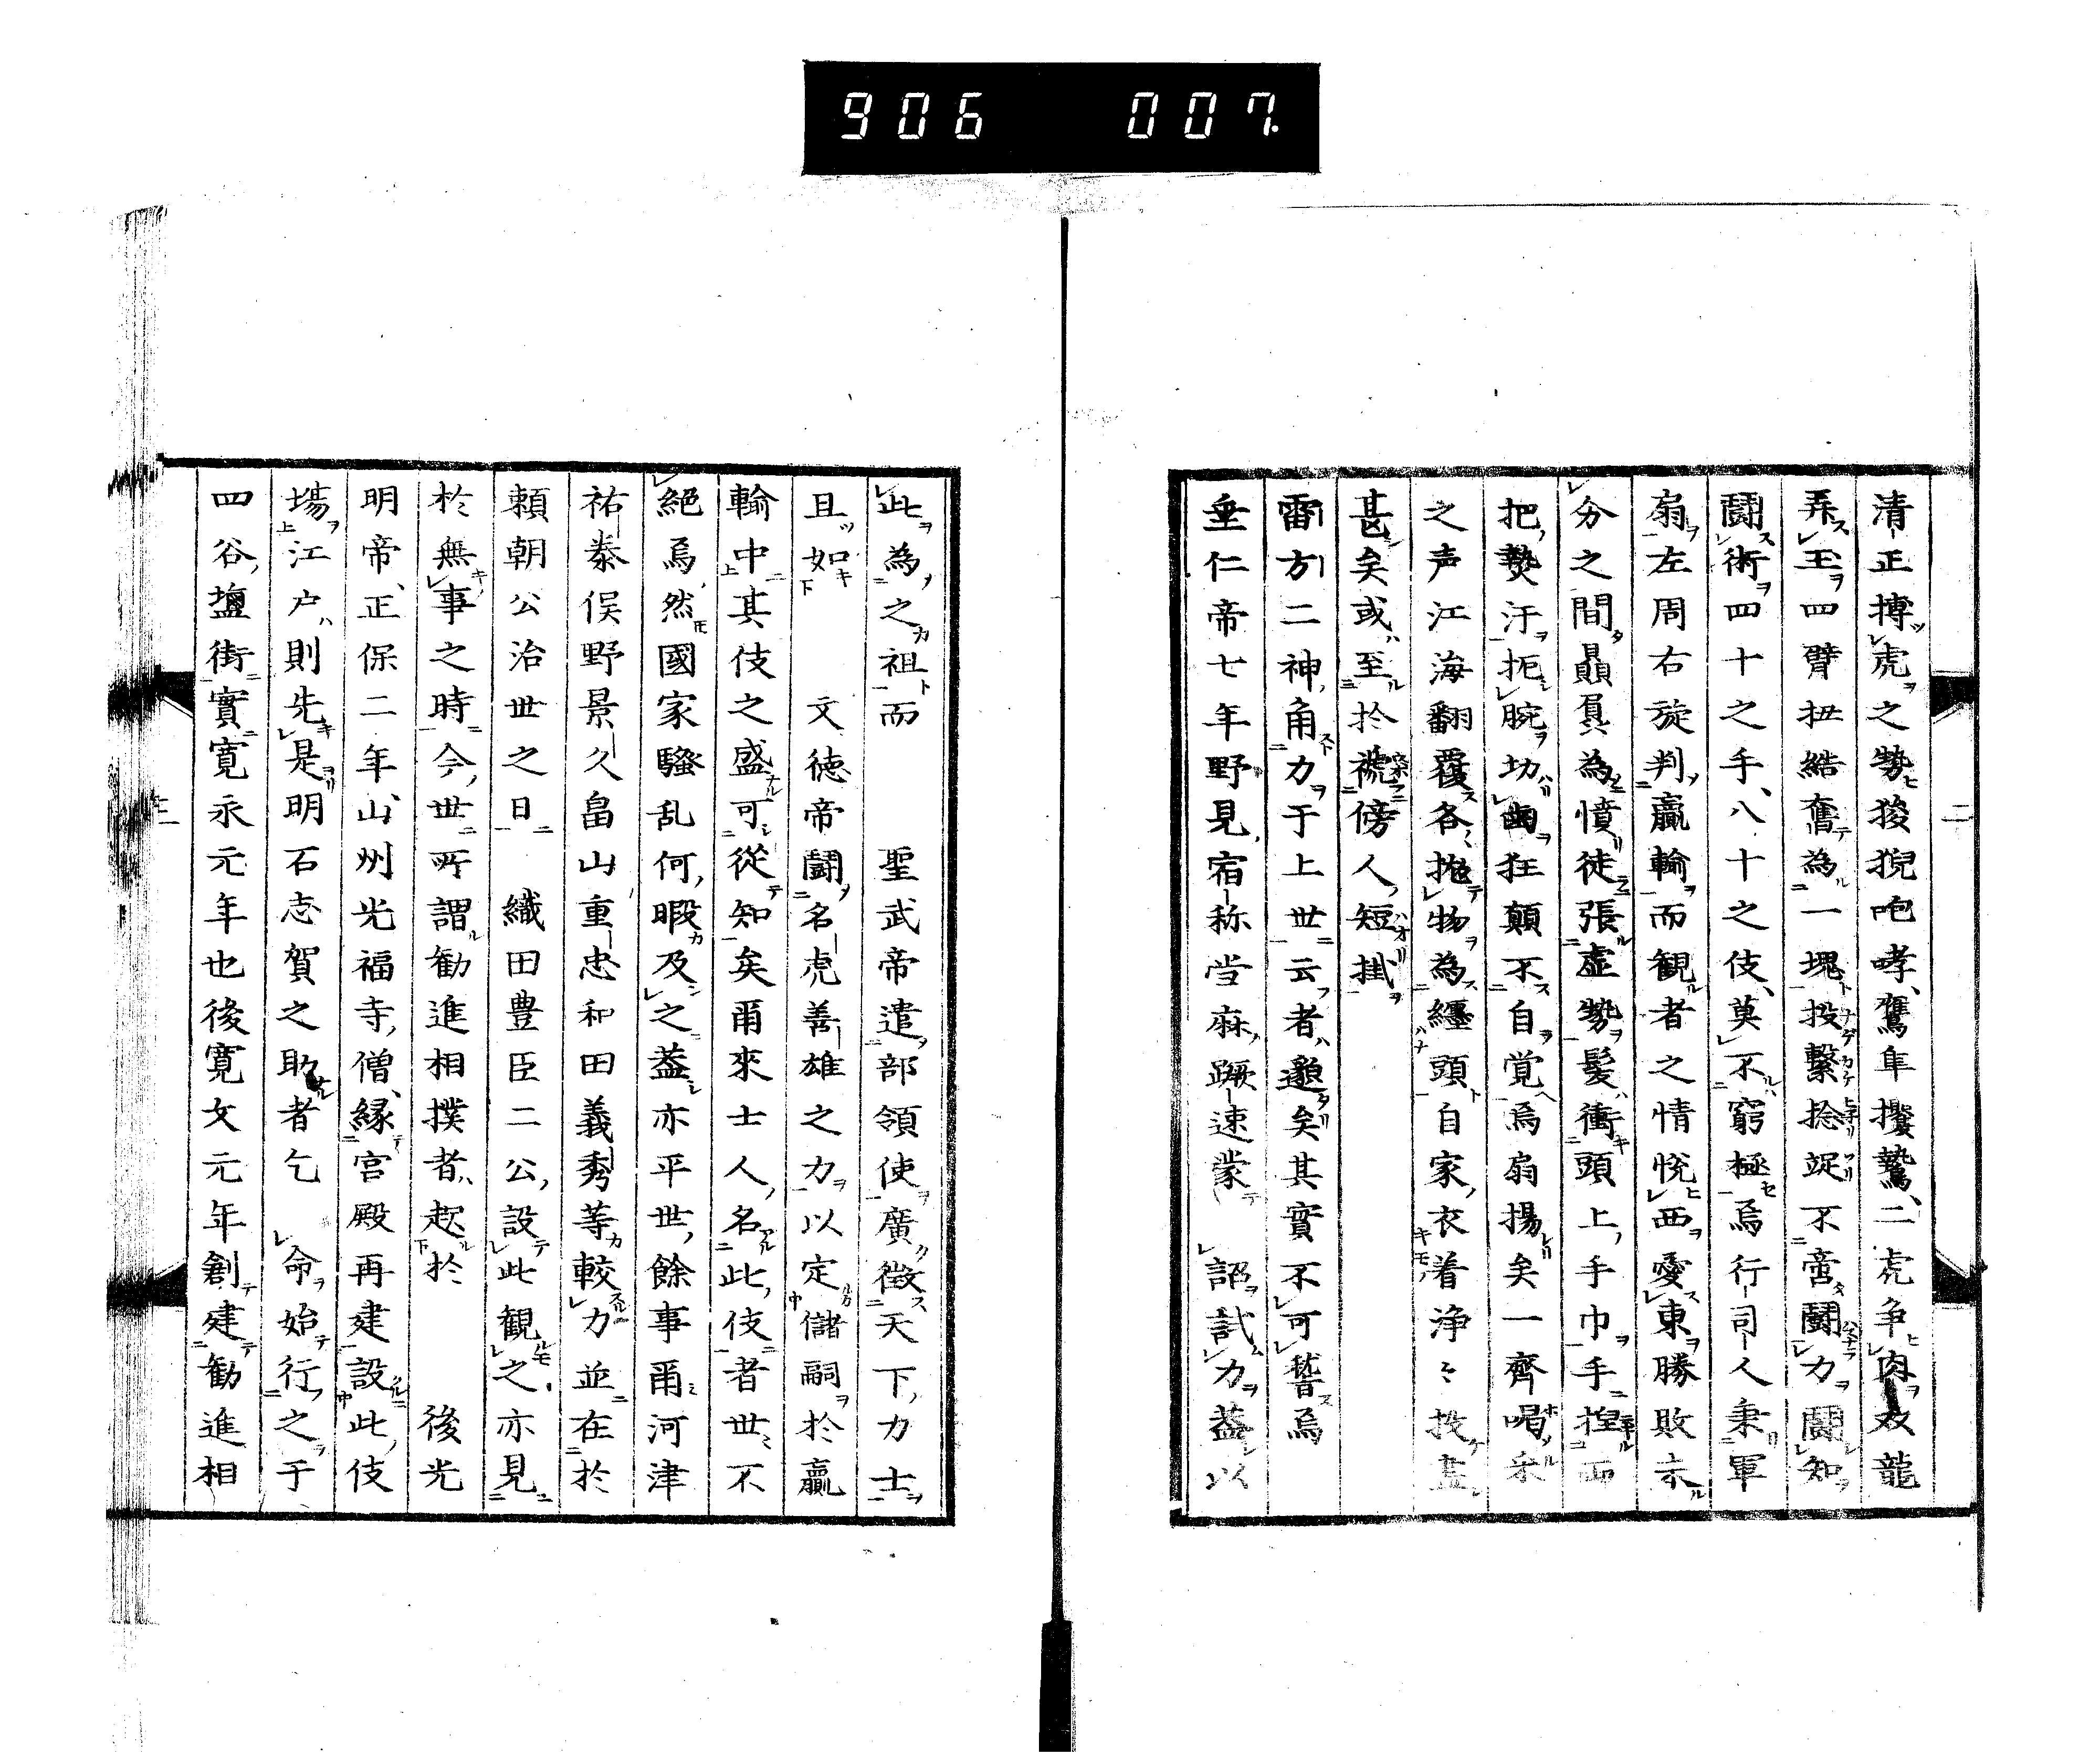 906 007.
二
清正搏虎之勢狻猊咆哮、鷹隼攫鷙、二虎争肉双龍
弄玉四臂扭結奮為一塊投繋捻捉不啻闘力闘知
闘術四十之手、八十之伎、莫不窮極焉行司人秉軍
扇左周右旋判贏輸而観者之情悅西愛東勝敗未
分之間贔屓為憤徒張虚勢髪衝頭上手巾手捏而
把熱汗扼腕切歯狂顛不自覚焉扇揚矣一齊喝采
之声江海翻覆各抛物為纏頭自家衣着浄〻投盡
甚矣或至於褫傍人短掛
雷方二神角力于上世云者邈矣其實不可誓焉
垂仁帝七年野見宿称当麻蹶速蒙 詔試力蓋以
此為之祖而 聖武帝遣部領使廣徴天下力士
且如 文徳帝闘名虎善雄之力以定儲嗣於贏
輸中其伎之盛可從知矣爾來士人名此伎者世不
絕焉然國家騒乱何暇及之蓋亦平世餘事爾河津
祐泰俣野景久畠山重忠和田義秀等較力並在於
頼朝公治世之日 織田豊臣二公設此観之亦見
於無事之時今世所謂勧進相撲者起於 後光
明帝正保二年山州光福寺僧縁宮殿再建設此伎
場江戸則先是明石志賀之助者乞 命始行之于
四谷塩街實寛永元年也後寛文元年創建勧進相